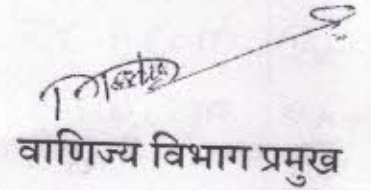 वाणिज्य विभाग प्रमुख